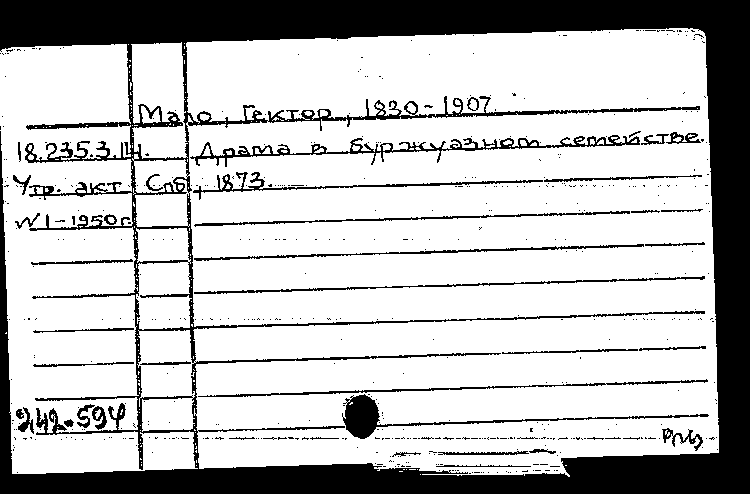 Мало, Гектор, 1830-1907
18.235.3.114. Драма в буржуазном семействе.
Утр. акт Спб, 1873.
№1-1950г.
242-594